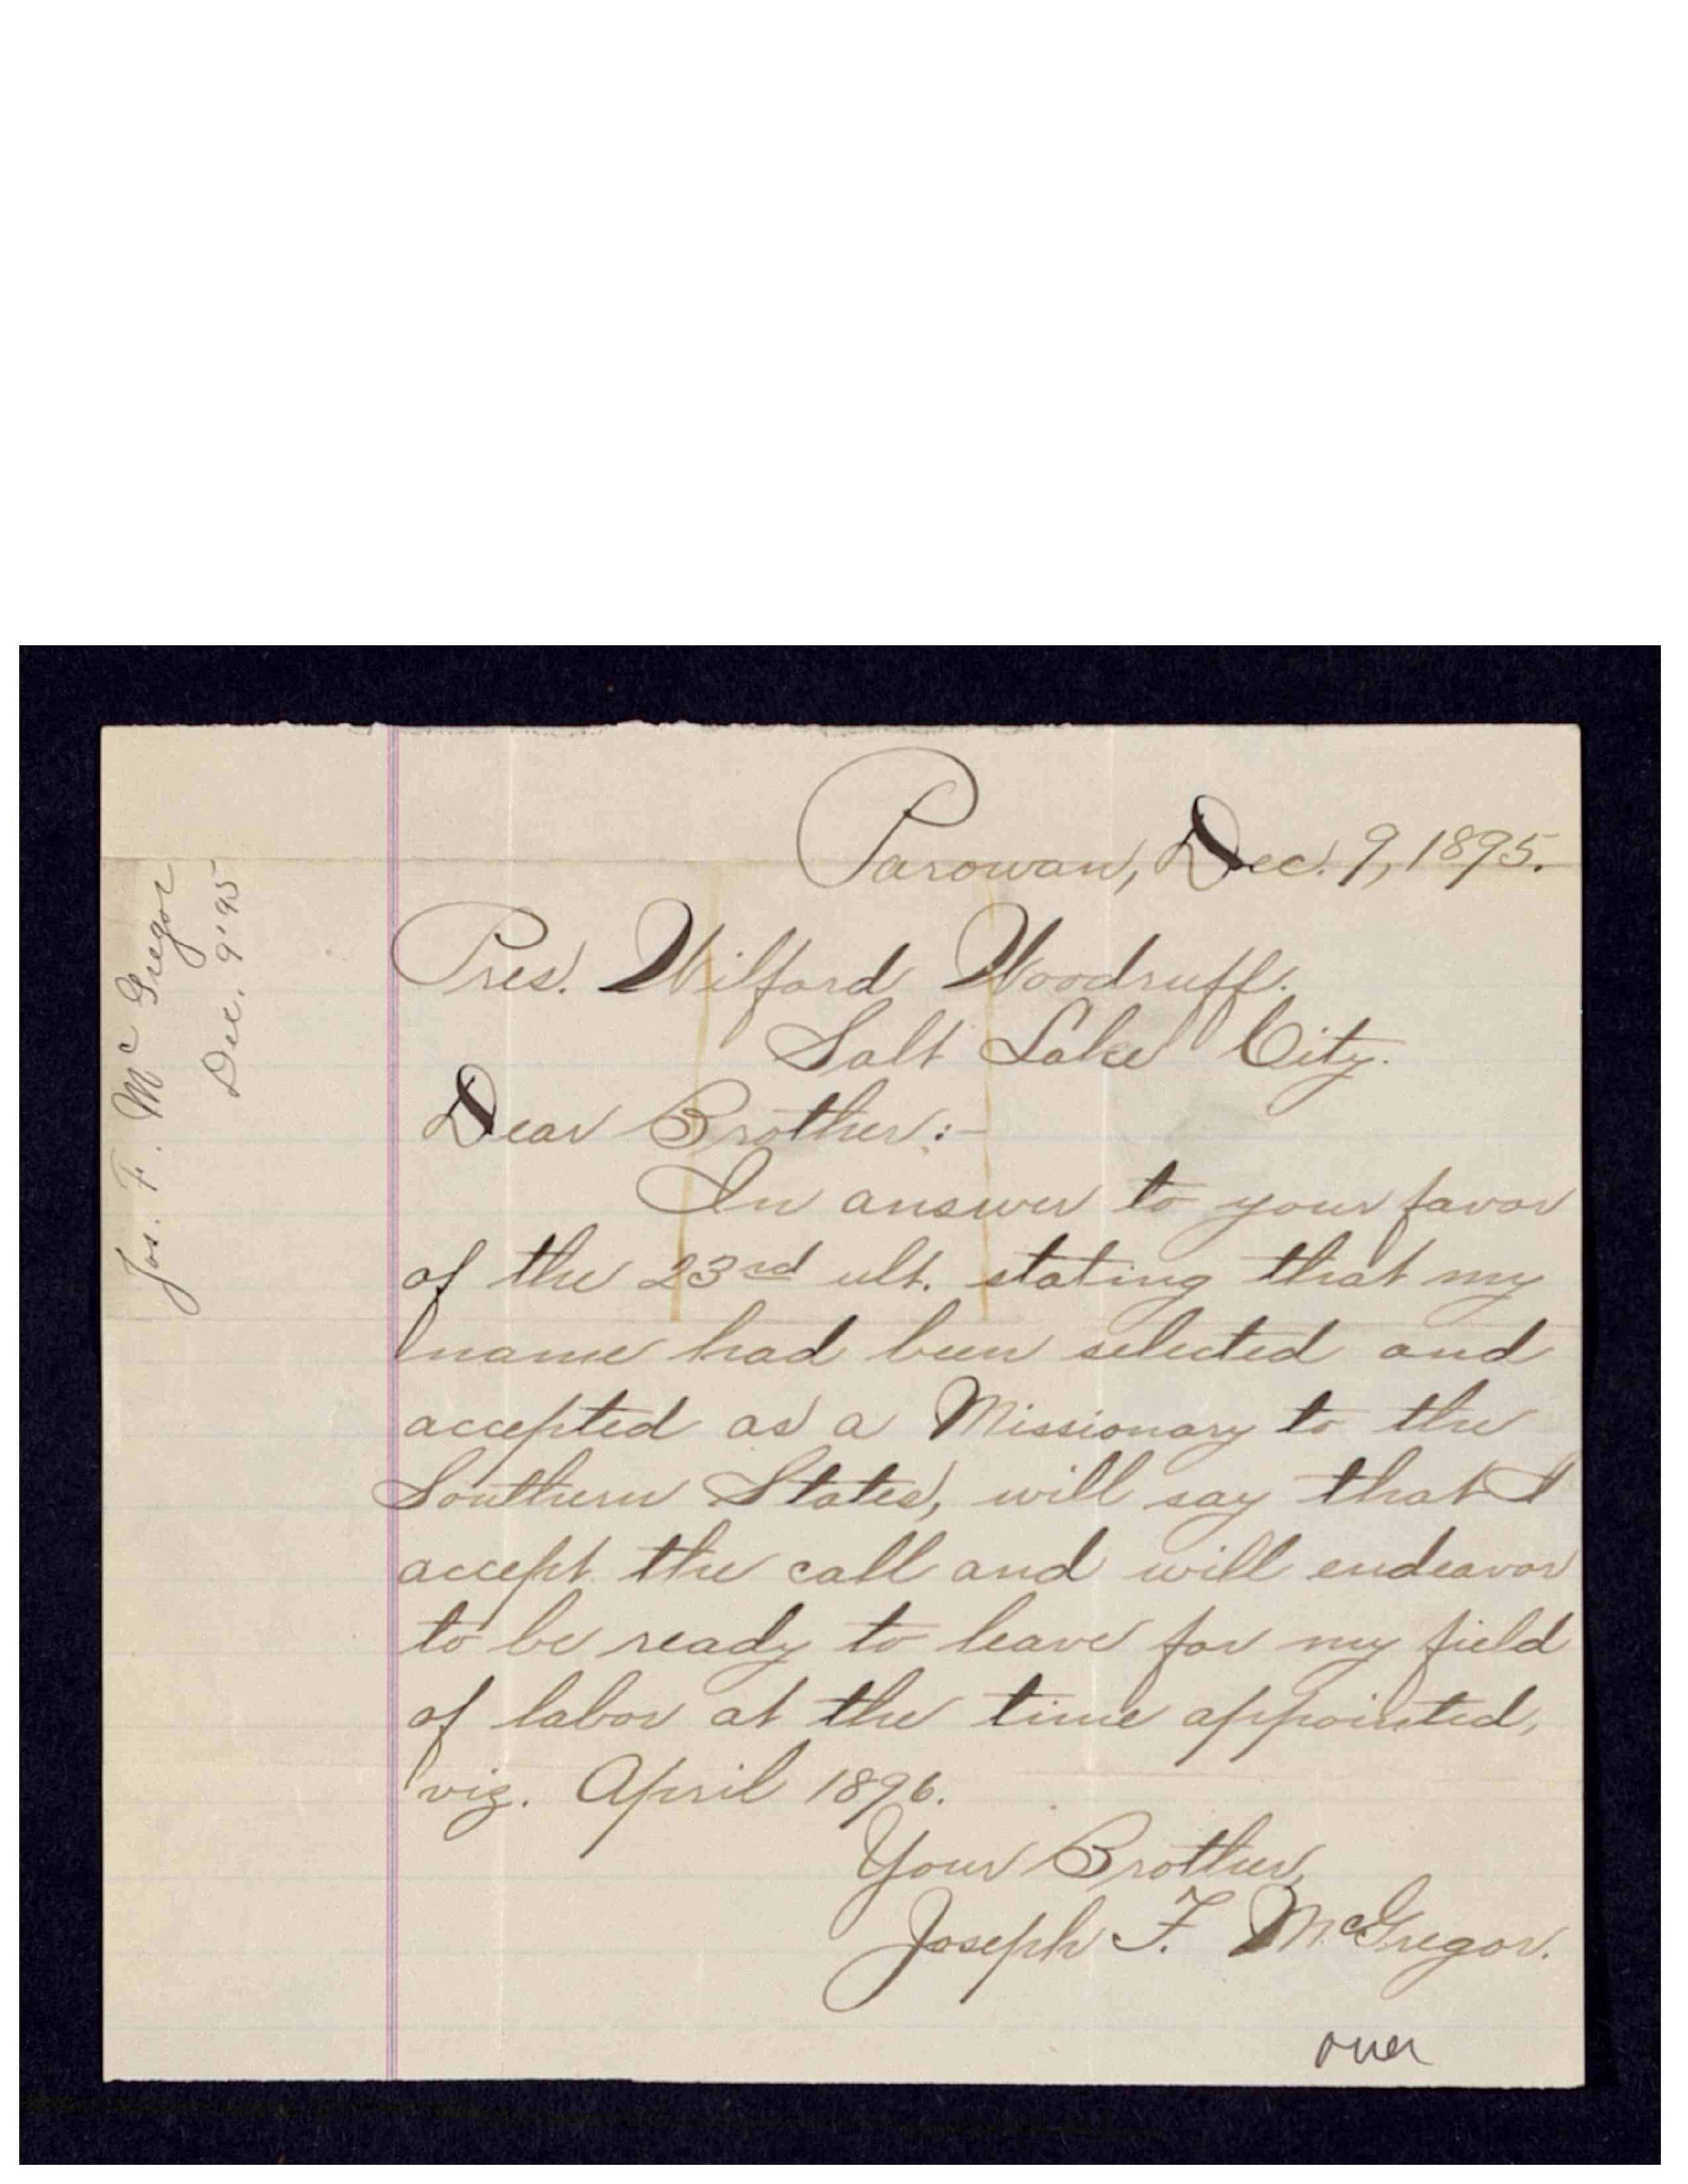 Parowan, Dec. 9, 1895.
Pres. Wilford Woodruff.
Salt Lake City.
Dear Brother:-
In answer to your favor
of the 23rd ult. stating that my
name had been selected and
accepted as a Missionary to the
Southern States, will say that I
accept the call and will endeavor
to be ready to leave for my field
of labor at the time appointed,
viz. April 1896.
Your Brother,
Joseph F. McGregor.
over
Jos. F. McGregor
Dec. 9 '95